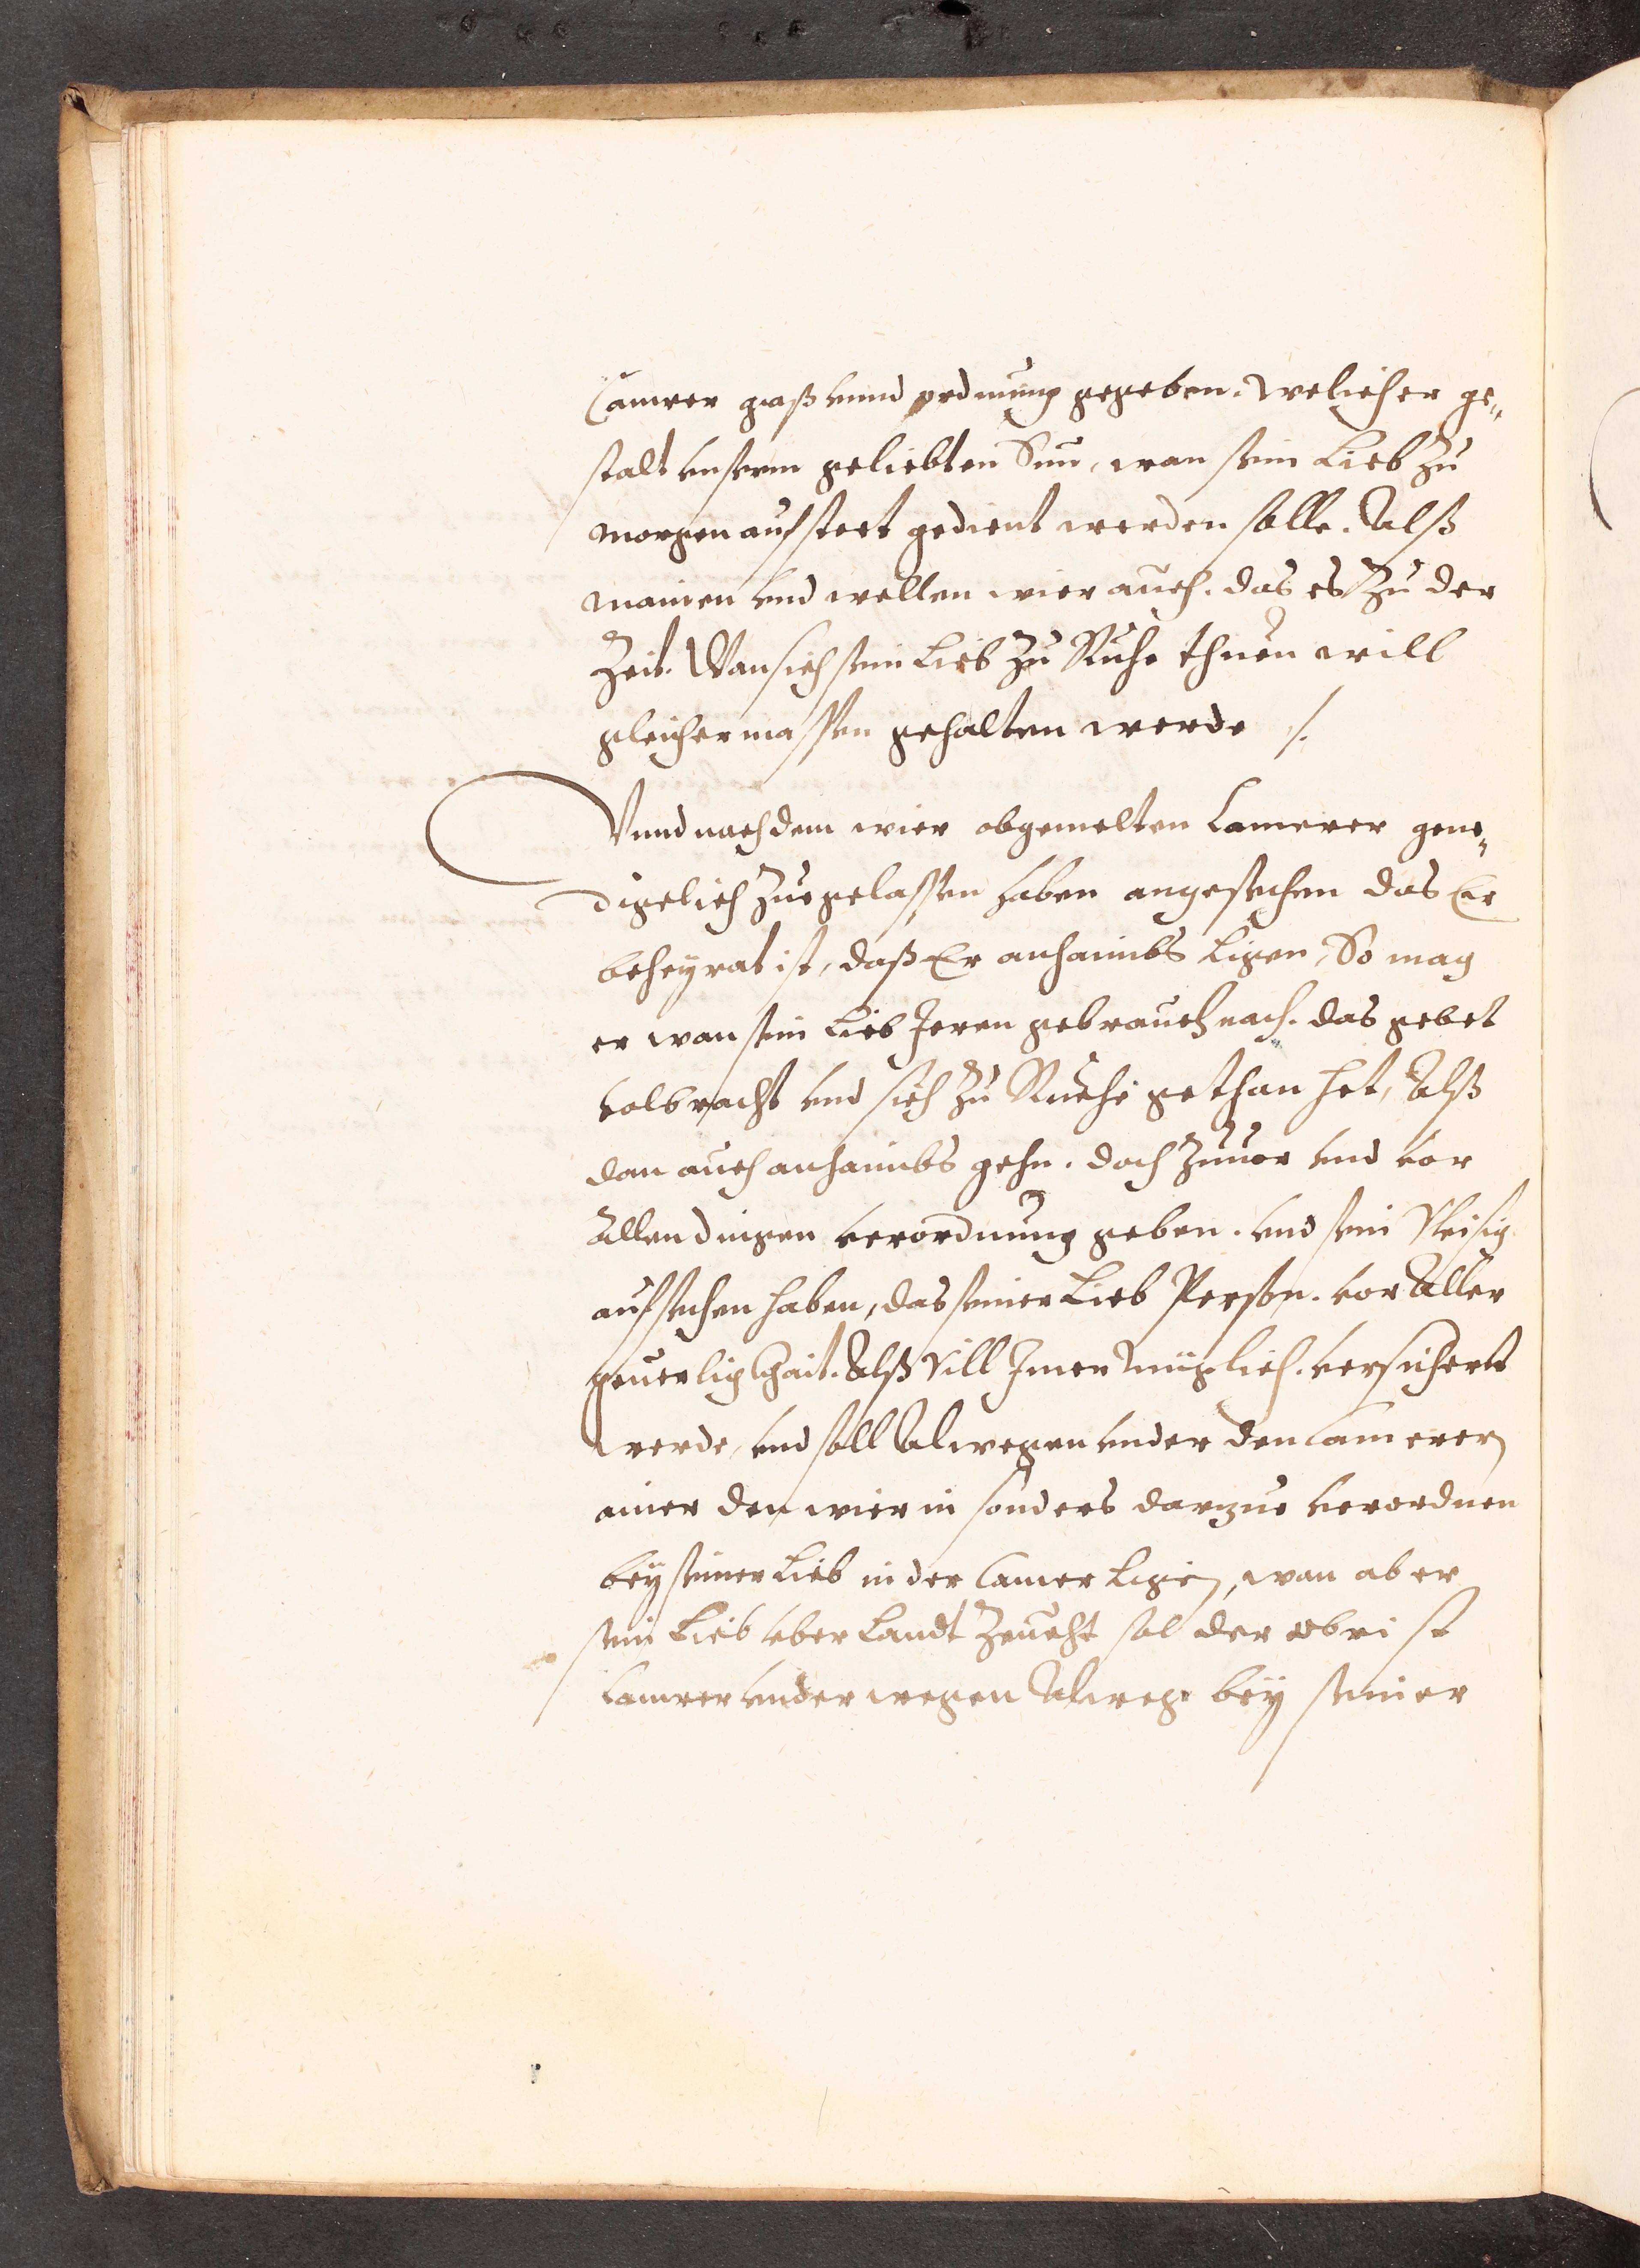 Camrer gaß vnnd ordnung gegeben. Welicher ge„
stalt vnserm geliebten Sun, wan sein Lieb Zu
morgen aufsteet gedient werden solle. Alß
mainen vnd wellen wier auch. das es Zu der
Zeit. Wan sich sein Lieb Zu Ruhe thuen will
gleichermassen gehalten werde /.
Vnnd nach dem wier obgemelten Camerer gene„
digelich Zuegelassen haben angesechen das Er
beheyrat ist, daß Er anhaimbs Ligen, So mag
er wan sein Lieb Jeren gebrauch nach. das gebet
volbracht vnd sich Zu Ruehe gethan het, Alß
dan auch anhaimbs gehn. doch Zuuor vnd vor
Allen dingen verordnung geben. vnd sein Vleisig
aufsechen haben, das seiner Lieb Person. vor Aller
geuerligkhait. Alß Vill Jmer müglich. versichert
werde, vnd soll Alwegen vnder den Camerern
ainer den wier in sonders darzue verordnen
bey seiner Lieb in der Camer Ligen, wan aber
sein Lieb vber Landt Zeucht sol der obrist
Camrer vnder wegen Alwege bey seiner